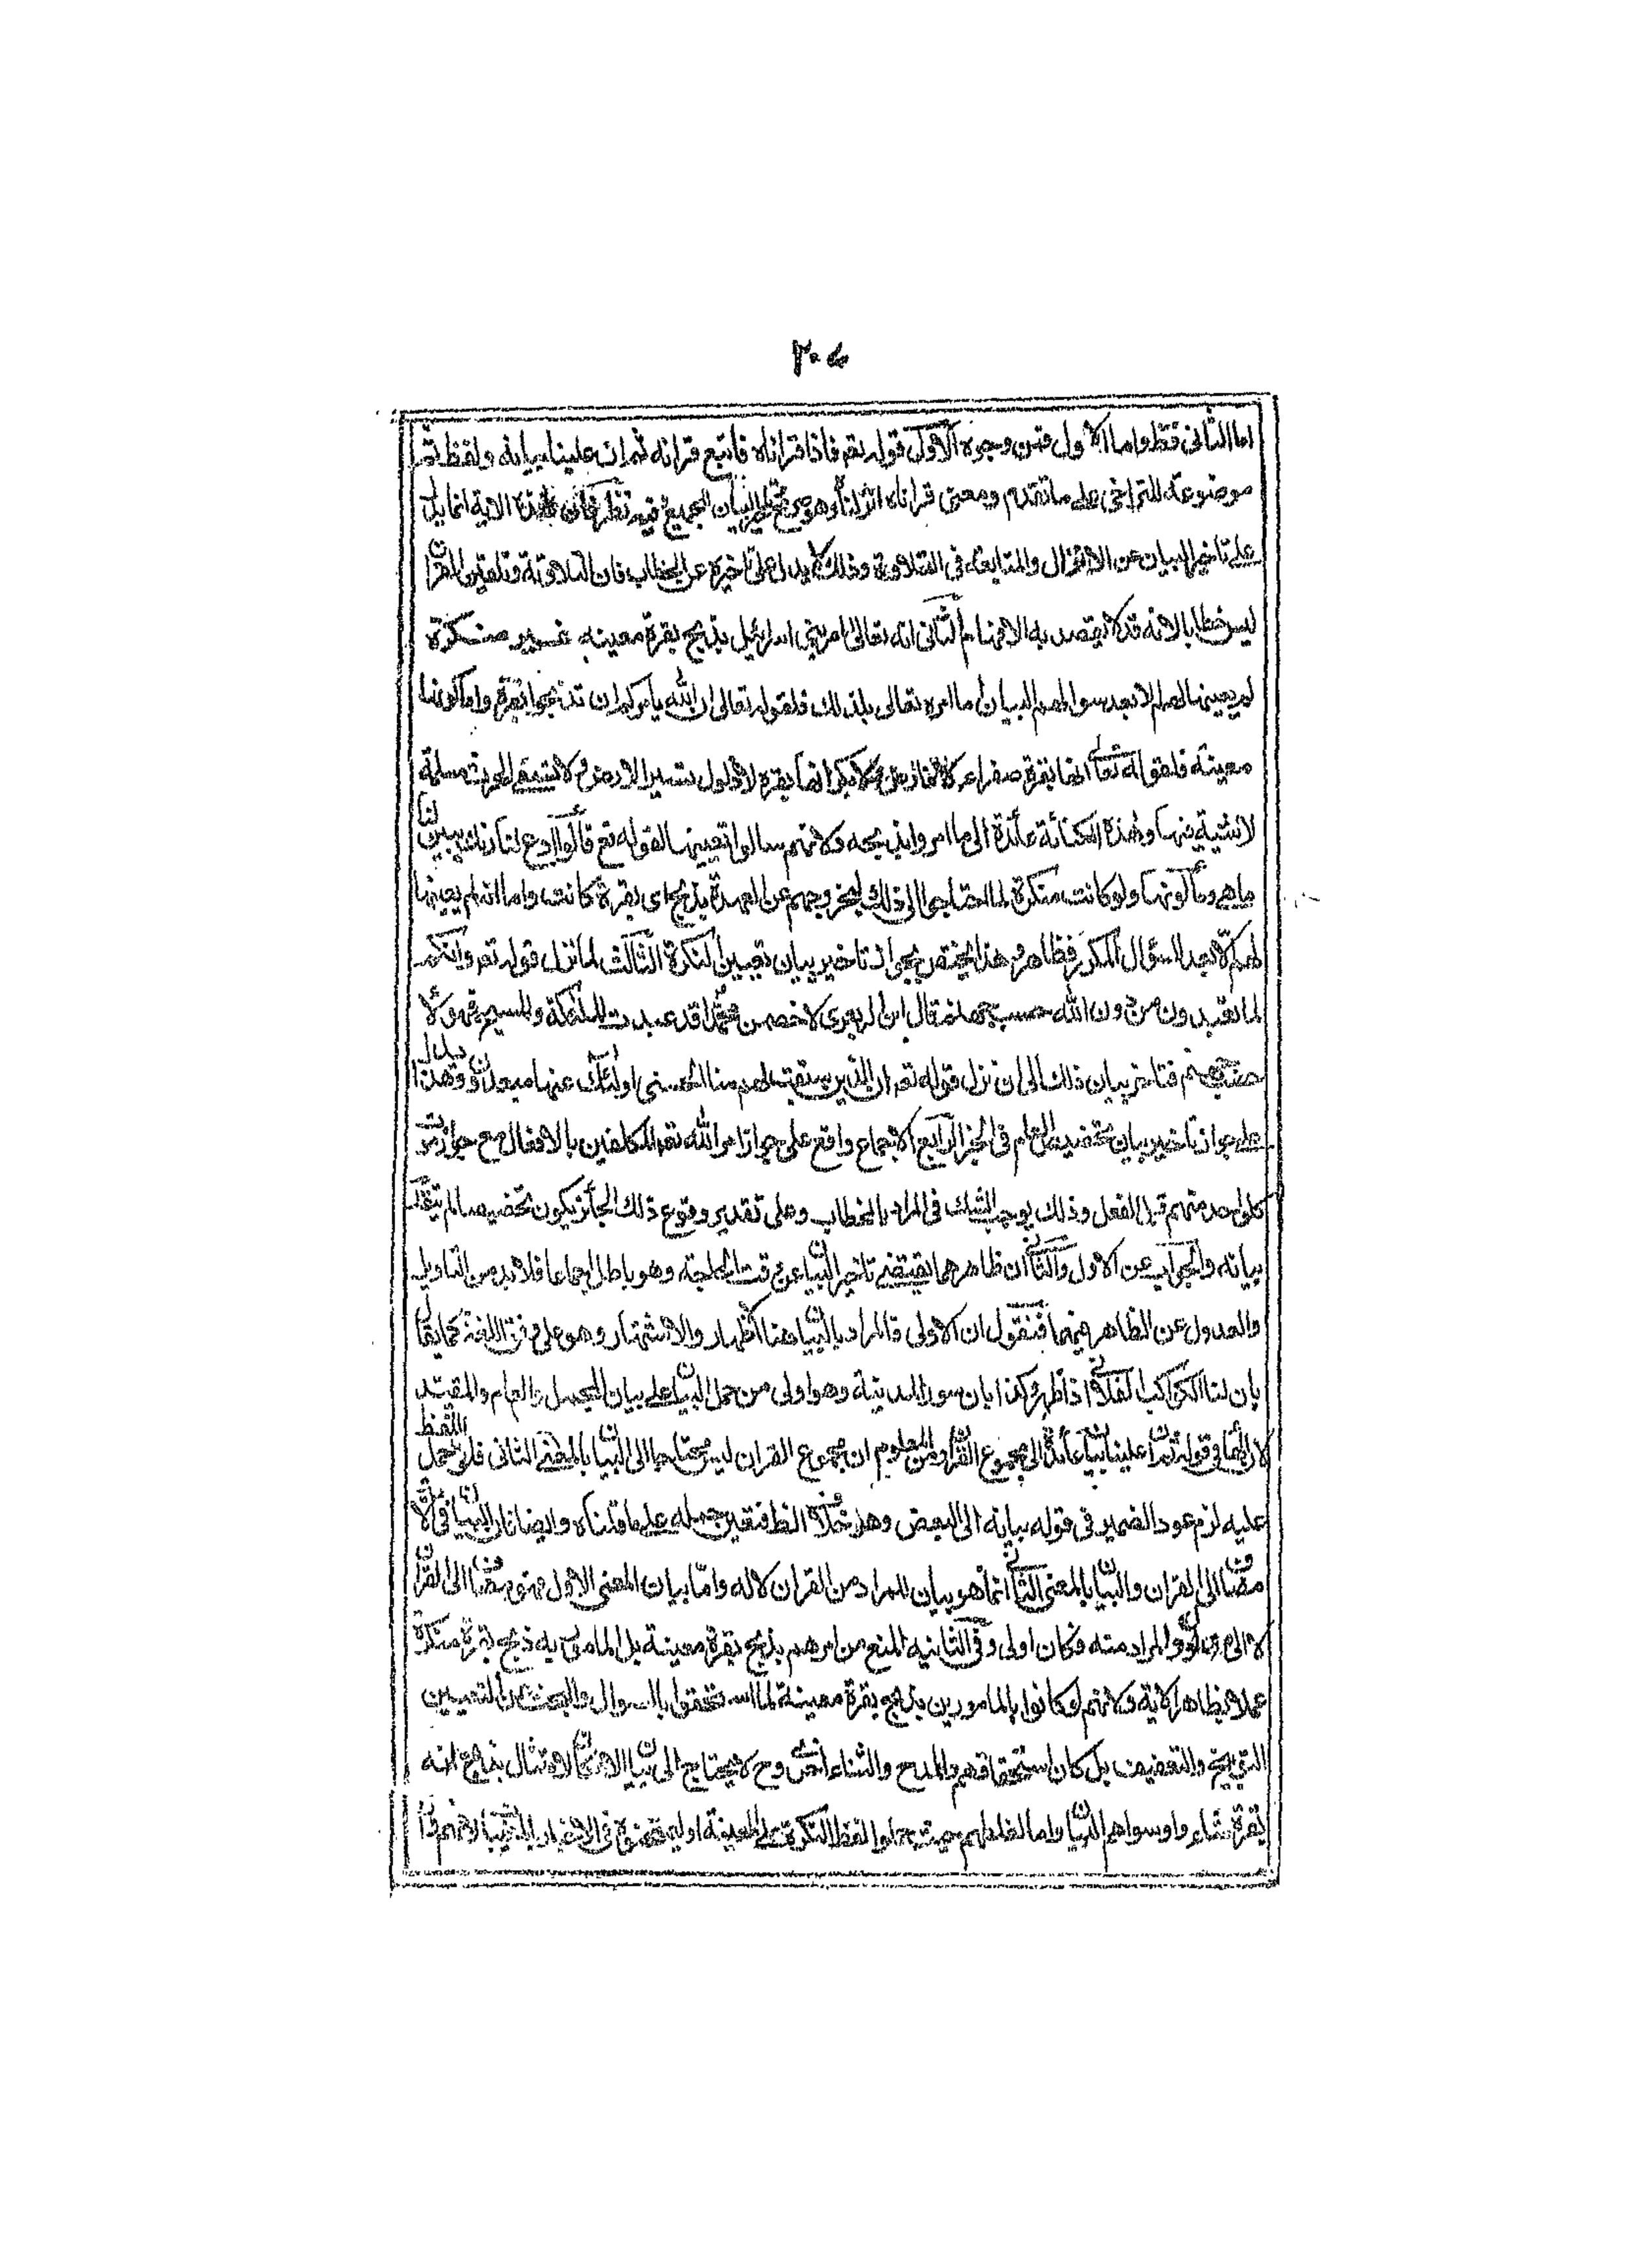 ٢٠٤
اما الثانى فقط واما الاول فمن وجوه الاول قوله تعم فاذا قراناه فاتبع قرانه ثم ان علينا بيانه ولفظ ثم
موضوعة للتراخى على ما تقدم ومعنى قراناه انزلناه وهو صريح البيان الجميع فيه نظر فان هذه الاية انما يدل
على تاخير البيان عن الانزال والمتابعة فى التلاوة وذلك لا يدل على تاخيره عن الخطاب فان التلاوة وتلقين القران
ليس خطابا لانه قد لا يقصد به الافهام الثانى انه تعالى امر بنى اسرائيل بذبح بقرة معينه غير منكرة
لم يعينها لهم الا بعد سوالهم البيان اما امره تعالى بذلك فلقوله تعالى ان الله يامركم ان تذبحوا بقرة واما كونها
معينة فلقوله تعالى انها بقرة صفراء لا فارض ولا بكر انها بقرة لا ذلول تثير الارض ولا تسقى الحرث مسلمة
لا شية فيها وهذه الكناية عائدة الى ما امروا بذبحه ولانهم سالوا تعيينها لقوله تع قالوا ادع لنا ربك يبين لنا
ما هى وما لونها ولو كانت منكرة لما احتاجوا الى ذلك لخروجهم عن العهدة بذبح اى بقرة كانت واما انه لم يعينها
لهم الا بعد السؤال المكرر فظاهر وهذا يختص بجواز تاخير بيان تعيين النكرة الثالث لما نزل قوله تعم وانكم
لما تعبدون من دون الله حسب جهنم قال ابن الزبعرى لاخصمن محمدا قد عبدت الملئكة والمسيح فهولا
حصب جهنم فتاخر بيان ذلك الى ان نزل قوله تعم ان الذين سبقت لهم منا الحسنى اولئك عنها مبعدون وهذا يدل
على جواز تاخير بيان تخصيص العام فى الخبر الرابع الاجماع واقع على جواز امر الله تعم المكلفين بالافعال مع جواز موت
كل واحد منهم قبل الفعل وذلك يوجب الشك فى المراد بالخطاب وعلى تقدير وقوع ذلك الجائز يكون تخصيصا لم يتقدم
بيانه والجواب عن الاول والثانى ان ظاهرهما يقتضى تاخير البيان عن وقت الحاجة وهو باطل اجماعا فلا بد من التاويل
والعدول عن الظاهر فيهما فنقول ان الاولى فالمراد بالبيان هنا اظهار والاشتهار وهو على وفق اللغة كما يقال
بان لنا الكوكب الفلانى اذا ظهر وكذا بان سور المدينة وهو اولى من حمل البيان على بيان المجمل والعام والمقيد
لان الهاء فى قوله ثم ان علينا بيانه عائدة الى مجموع القران ومن المعلوم ان مجموع القران ليس محتاجا الى البيان بالمعنى الثانى فلو حمل اللفظ
عليه لزم عود الضمير فى قوله بيانه الى البعض وهذا خلاف الظ فتعين حمله على ما قلناه وايضا فان البيان فى الاية
مضاف الى القران والبيان بالمعنى الثانى انما هو بيان المراد من القران لا له واما بيان المعنى الاول فهو مضاف الى القران
لا الى المراد منه فكان اولى وفى الثانيه المنع من امرهم بذبح بقرة معينة بل المامور به ذبح بقرة منكرة
عملا بظاهر الاية ولانهم لو كانوا بالمامورين بذبح بقرة معينة لما استحقوا بالسوال والبحث عن التعيين
التوبيخ والتعنيف بل كان استحقاقهم والمدح والثناء وح لا يحتاج الى بيان الامتثال بذبح اية
بقرة شاء واوسوالهم البيان واما لغلطهم حيث حملوا لفظ النكرة على المعينة